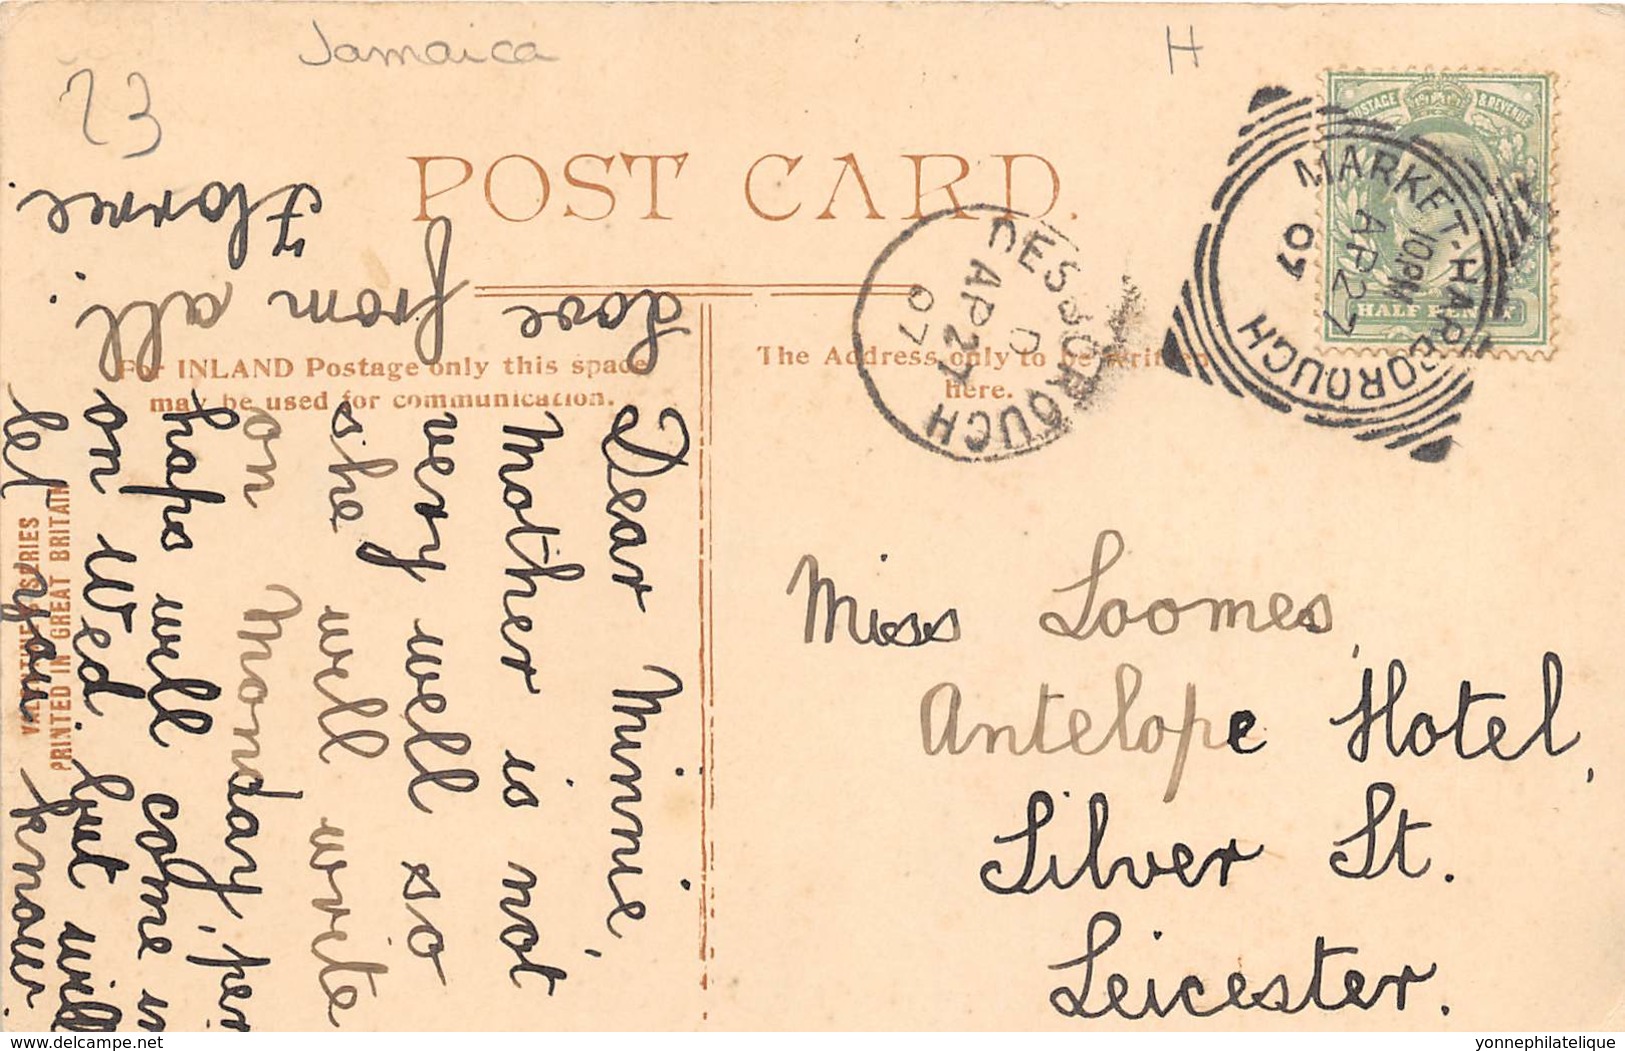 Jamaica
H
23
POST CARD.
For INLAND Postage only this space
may be used for communication.
The Address only to be written
here.
POSTAGE & REVENUE
HALF PENNY
MARKET-HARBOROUGH
10.PM
AP 27
07
DESBOROUGH
D
AP 27
07
Dear Minnie,
Mother is not
very well so
she will write
on Monday, per
haps will come in
on Wed. but will
let you know.
Love
from all
Florrie.
Miss Loomes,
Antelope Hotel,
Silver St.
Leicester.
VALENTINE'S SERIES
PRINTED IN GREAT BRITAIN
delcampe.net
yonnephilatelique